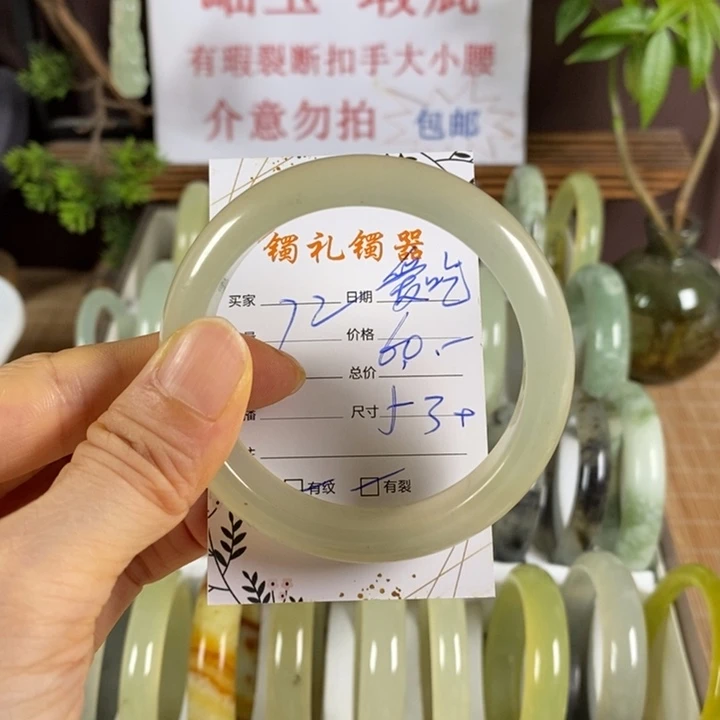 岫玉 瑕疵
有瑕裂断扣手大小腰
介意勿拍 包邮
镯礼镯器
买家 72 日期 爱吃
价格 60.-
总价
尺寸 53+
有纹 有裂